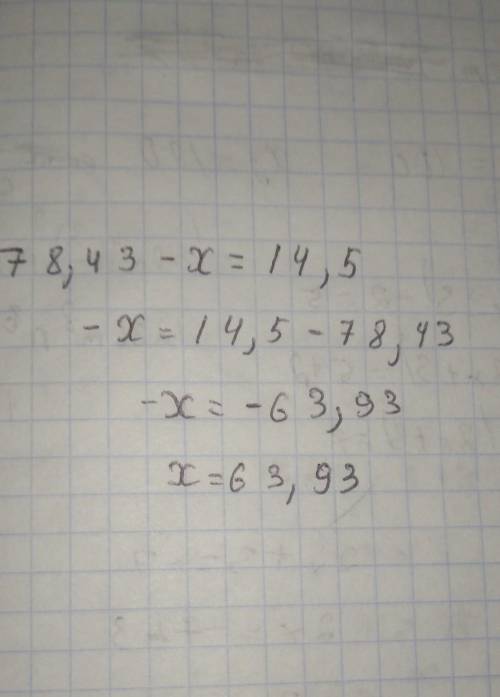 78,43 - x = 14,5
- x = 14,5 - 78,43
-x = -63,93
x = 63,93